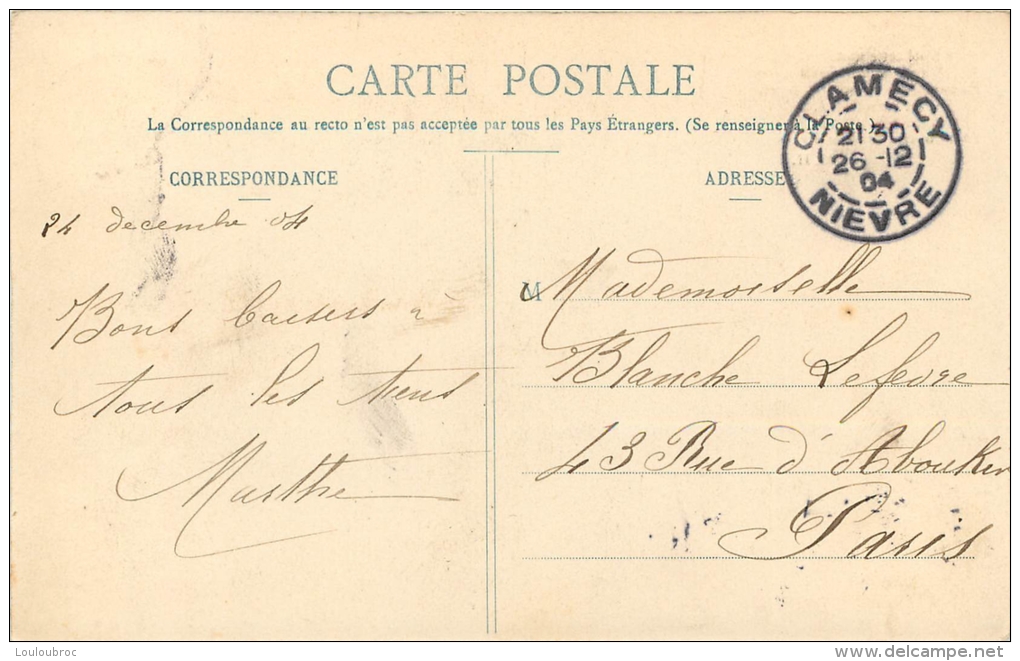 CARTE POSTALE
La Correspondance au recto n'est pas acceptée par tous les Pays Étrangers. (Se renseigner à la Poste.)
CORRESPONDANCE
ADRESSE
CLAMECY
21 30
26 -12
04
NIEVRE
24 decembre 04
Bons baisers à
tous les tiens
Marthe
M
Mademoiselle
Blanche Lefevre
43 Rue d'Abouker
Paris
Louloubroc
delcampe.net